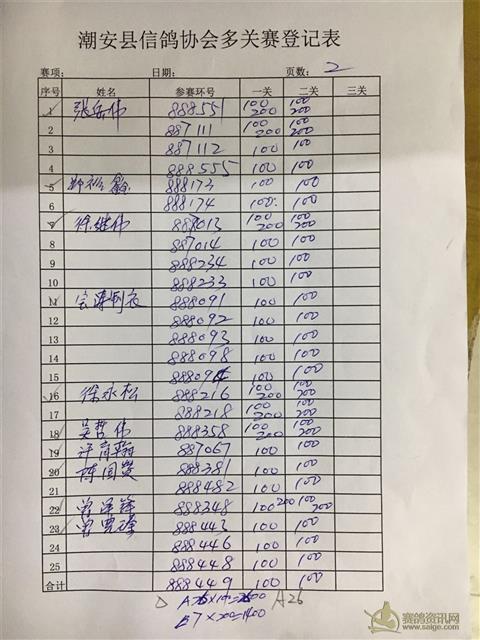 潮安县信鸽协会多关赛登记表
赛项: 日期: 页数: 2
序号 姓名 参赛环号 一关 二关 三关
1 张岳伟 888551 100 200 100 200
2 887111 100 200 100 200
3 887112 100 100
4 888555 100 100
5 888173 100 100
6 888174 100 100
7 徐继伟 888013 100 200 100 200
8 887014 100 100
9 888234 100 100
10 888233 100 100
11 888091 100 100
12 888092 100 100
13 888093 100 100
14 888098 100 100
15 888094 100 100
16 徐永松 888216 100 200 100 200
17 888218 100 200 100 200
18 吴哲伟 888358 100 200 100 200
19 887067 100 100
20 888381 100 100
21 888482 100 100
22 曾泽锋 888348 100 200 100 200
23 888443 100 100
24 888446 100 100
25 888448 100 100
合计 888449 100 100
A26
B7×200=1400
赛鸽资讯网
www.saige.com